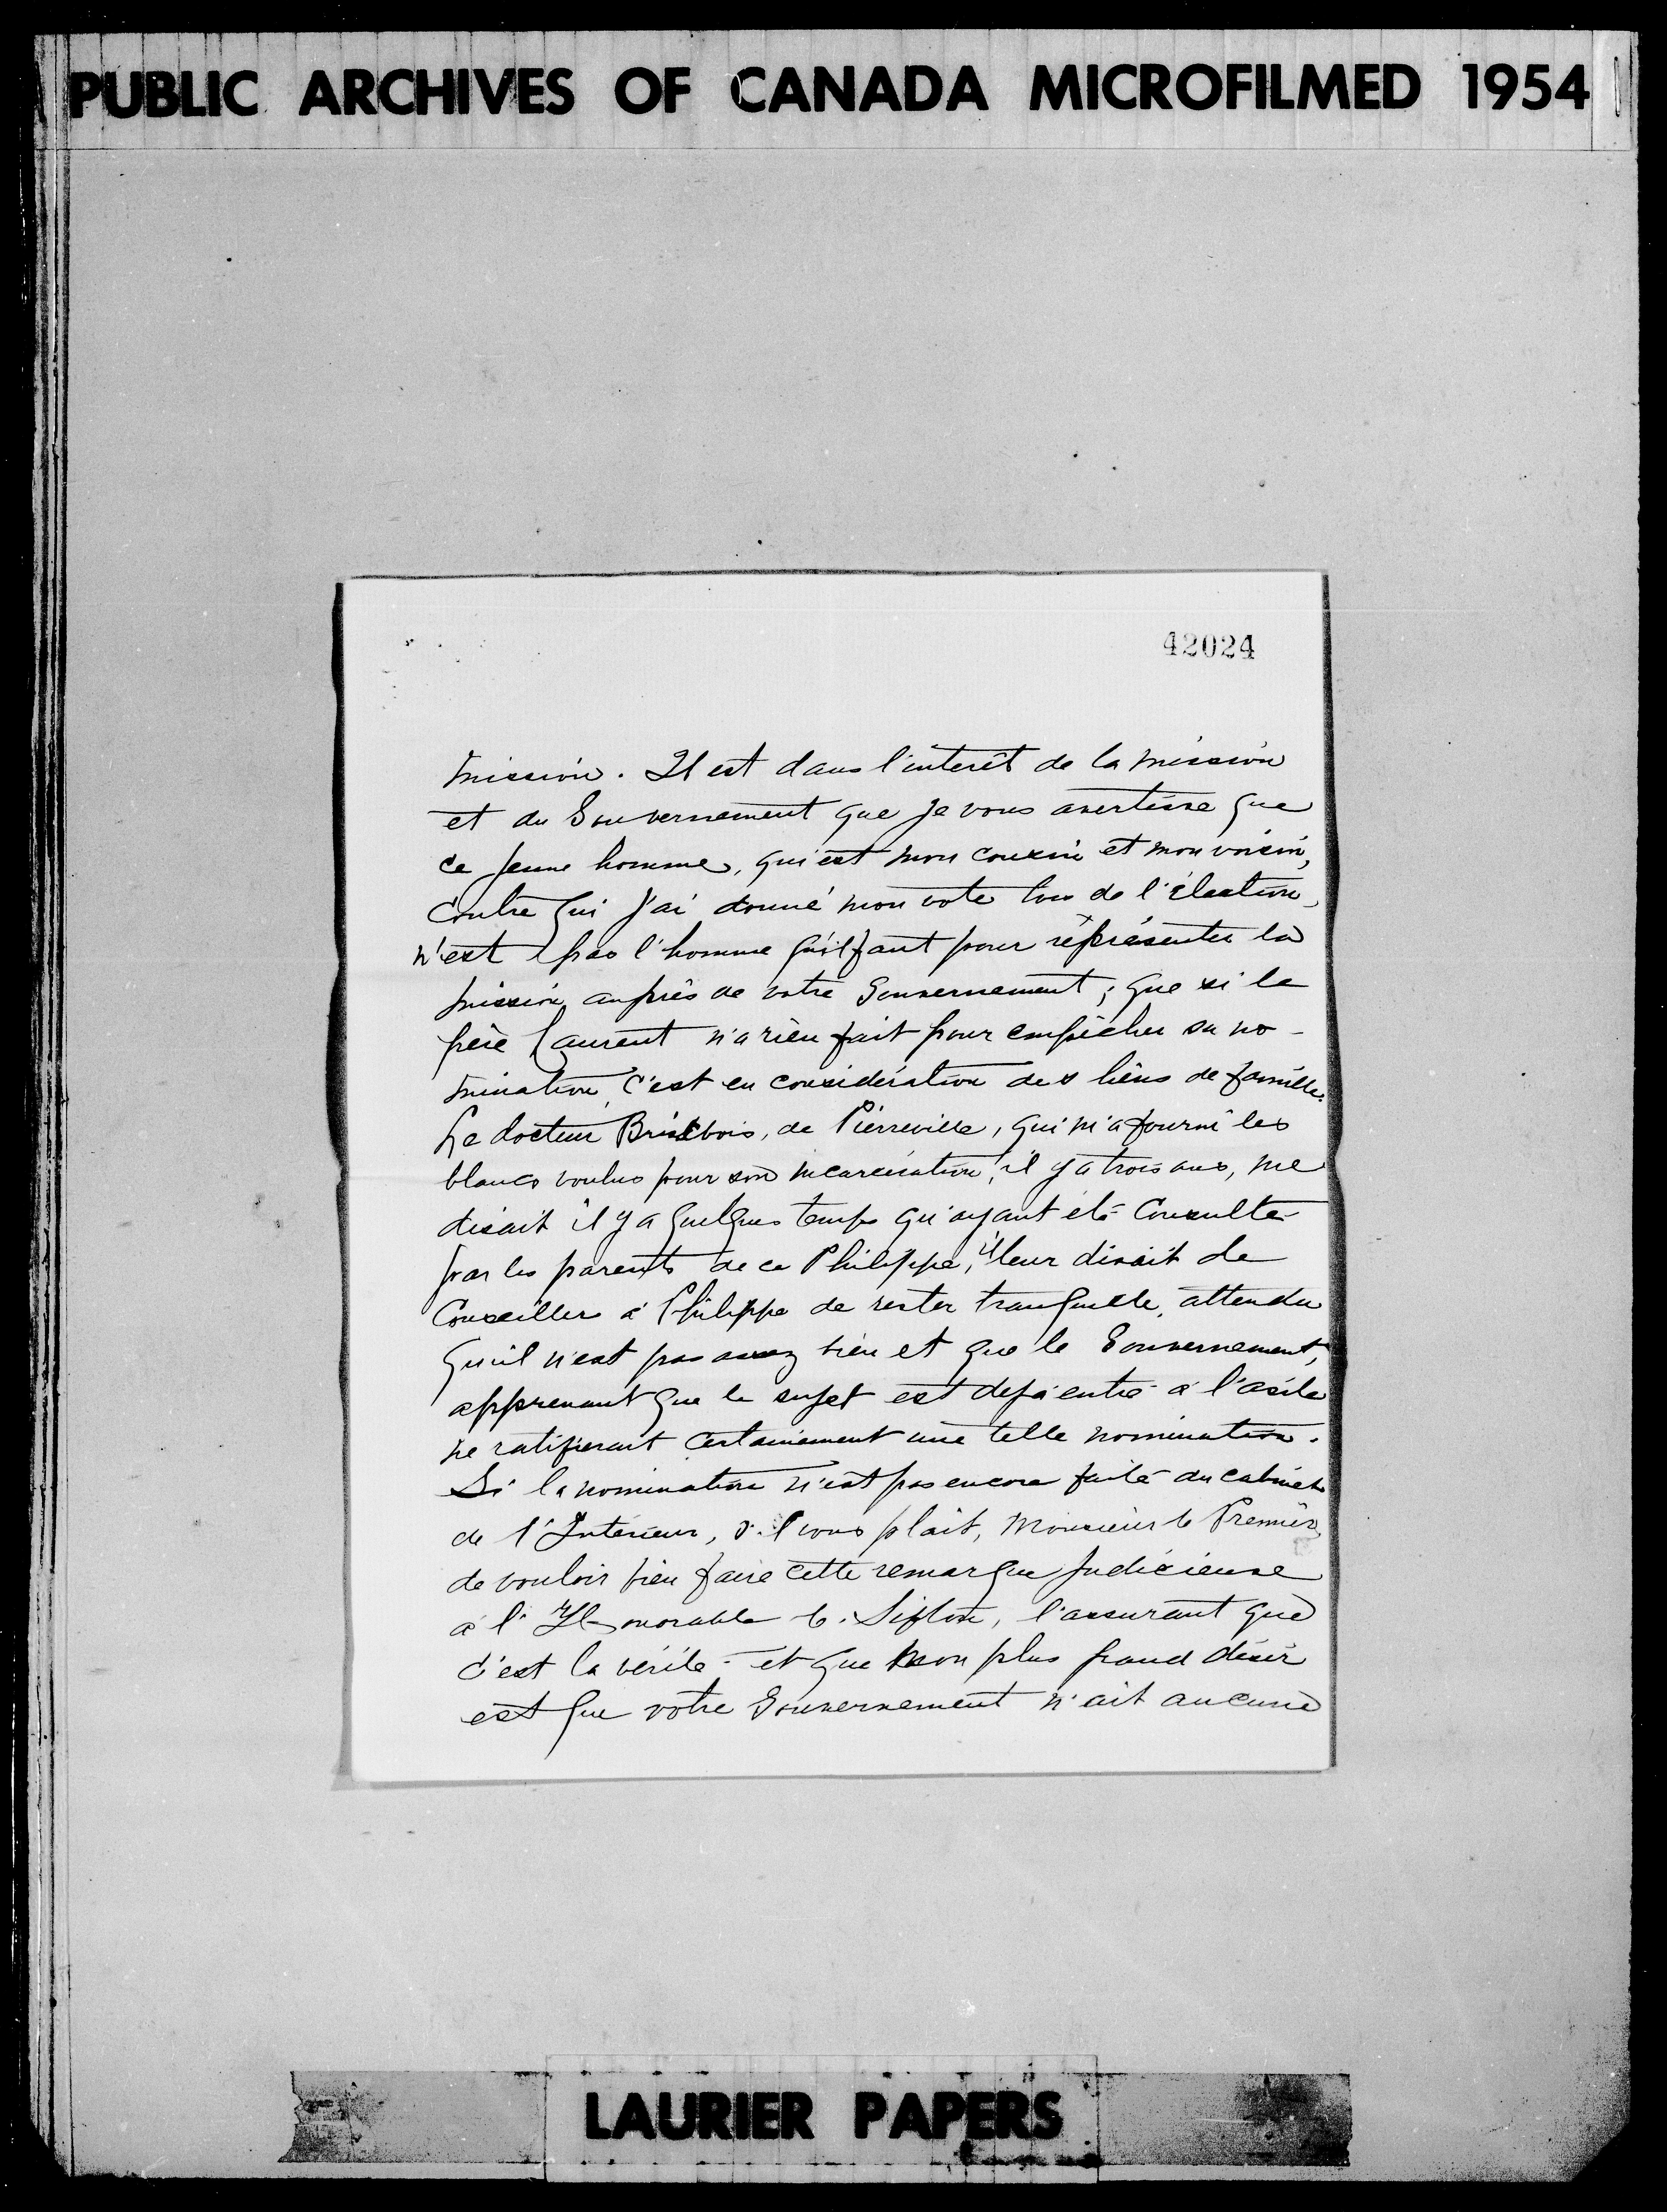 PUBLIC ARCHIVES OF CANADA MICROFILMED 1954
42024
mission. Il est dans l'intérêt de la mission
et du Gouvernement que je vous avertisse que
ce jeune homme, qui est mon cousin et mon voisin,
contre qui j'ai donné mon vote lors de l'élection,
n'est pas l'homme qu'il faut pour représenter la
mission auprès de votre Gouvernement; que si le
père Laurent n'a rien fait pour empêcher sa no-
mination, c'est en considération des liens de famille.
Le docteur Brisebois, de Pierreville, qui m'a fourni les
blancs voulus pour son incarcération, il y a trois ans, me
disait il y a quelques temps qu'ayant été consulté
par les parents de ce Philippe, il leur disait de
Conseiller à Philippe de rester tranquille, attendu
qu'il n'est pas assez bien et que le Gouvernement,
apprenant que le sujet est déjà entré à l'asile
ne ratifierait certainement une telle nomination.
Si la nomination n'est pas encore faite au cabinet
de l'Intérieur, s.'l vous plait, Monsieur le Premier,
de vouloir bien faire cette remarque judicieuse
à l'Honorable C. Sifton, l'assurant que
c'est la vérité et que mon plus grand désir
est que votre Gouvernement n'ait aucune
LAURIER PAPERS